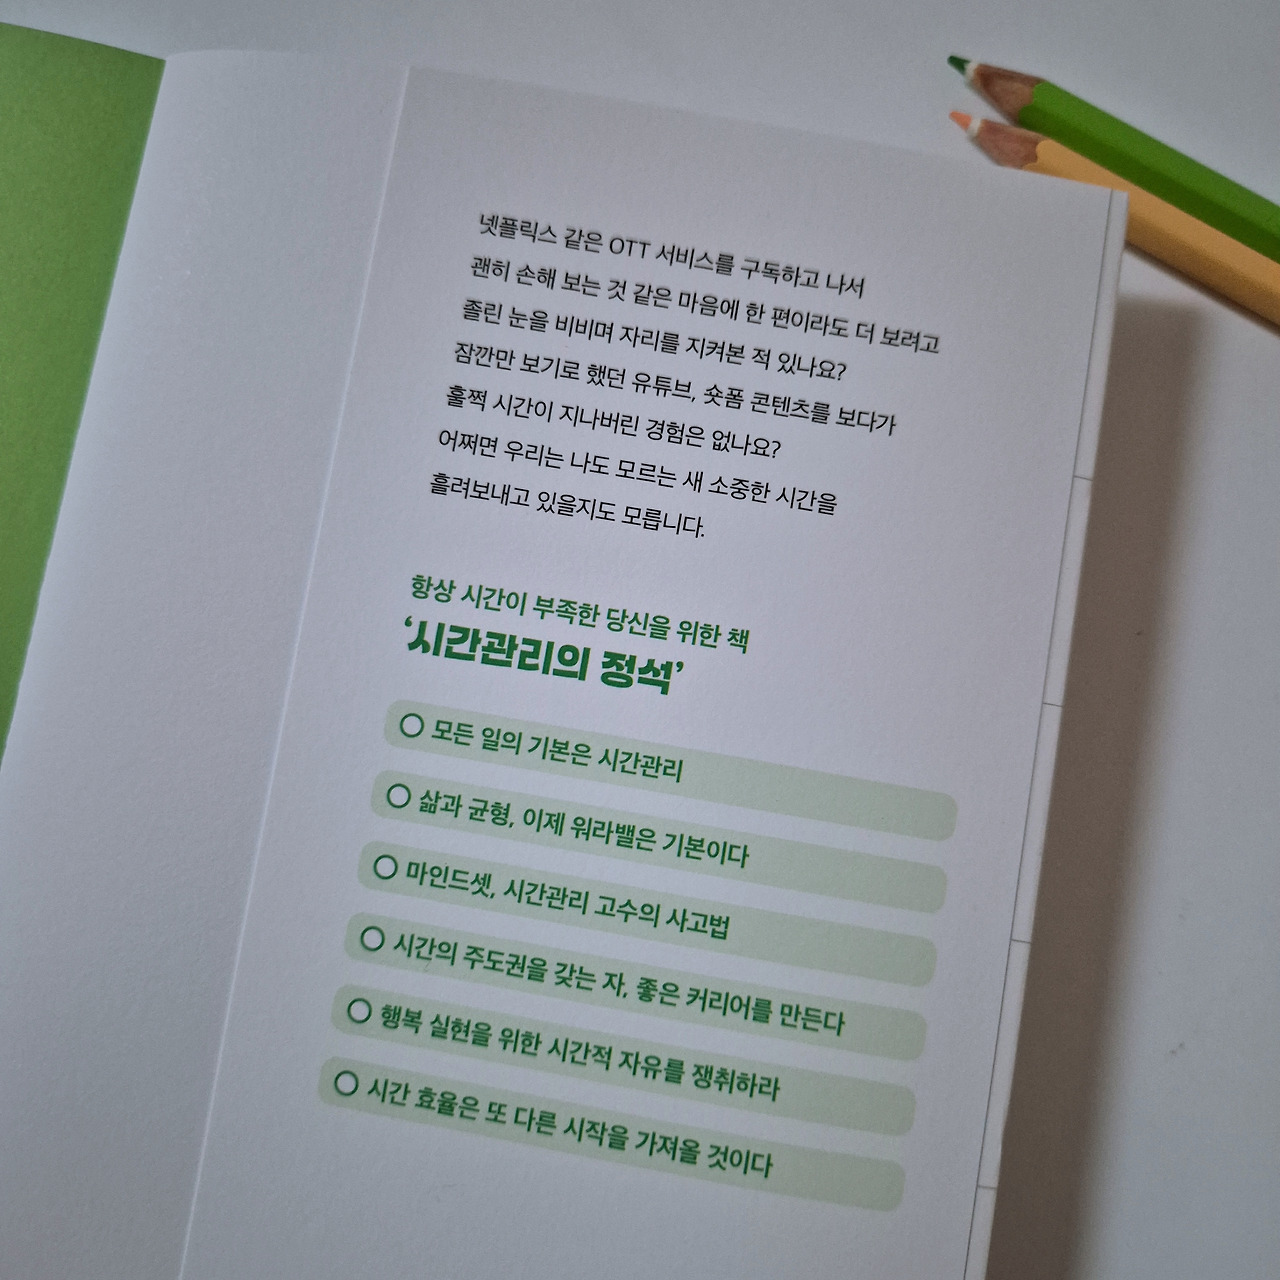 넷플릭스 같은 OTT 서비스를 구독하고 나서
괜히 손해 보는 것 같은 마음에 한 편이라도 더 보려고
졸린 눈을 비비며 자리를 지켜본 적 있나요?
잠깐만 보기로 했던 유튜브, 숏폼 콘텐츠를 보다가
훌쩍 시간이 지나버린 경험은 없나요?
어쩌면 우리는 나도 모르는 새 소중한 시간을
흘려보내고 있을지도 모릅니다.
항상 시간이 부족한 당신을 위한 책
‘시간관리의 정석’
○ 모든 일의 기본은 시간관리
○ 삶과 균형, 이제 워라밸은 기본이다
○ 마인드셋, 시간관리 고수의 사고법
○ 시간의 주도권을 갖는 자, 좋은 커리어를 만든다
○ 행복 실현을 위한 시간적 자유를 쟁취하라
○ 시간 효율은 또 다른 시작을 가져올 것이다